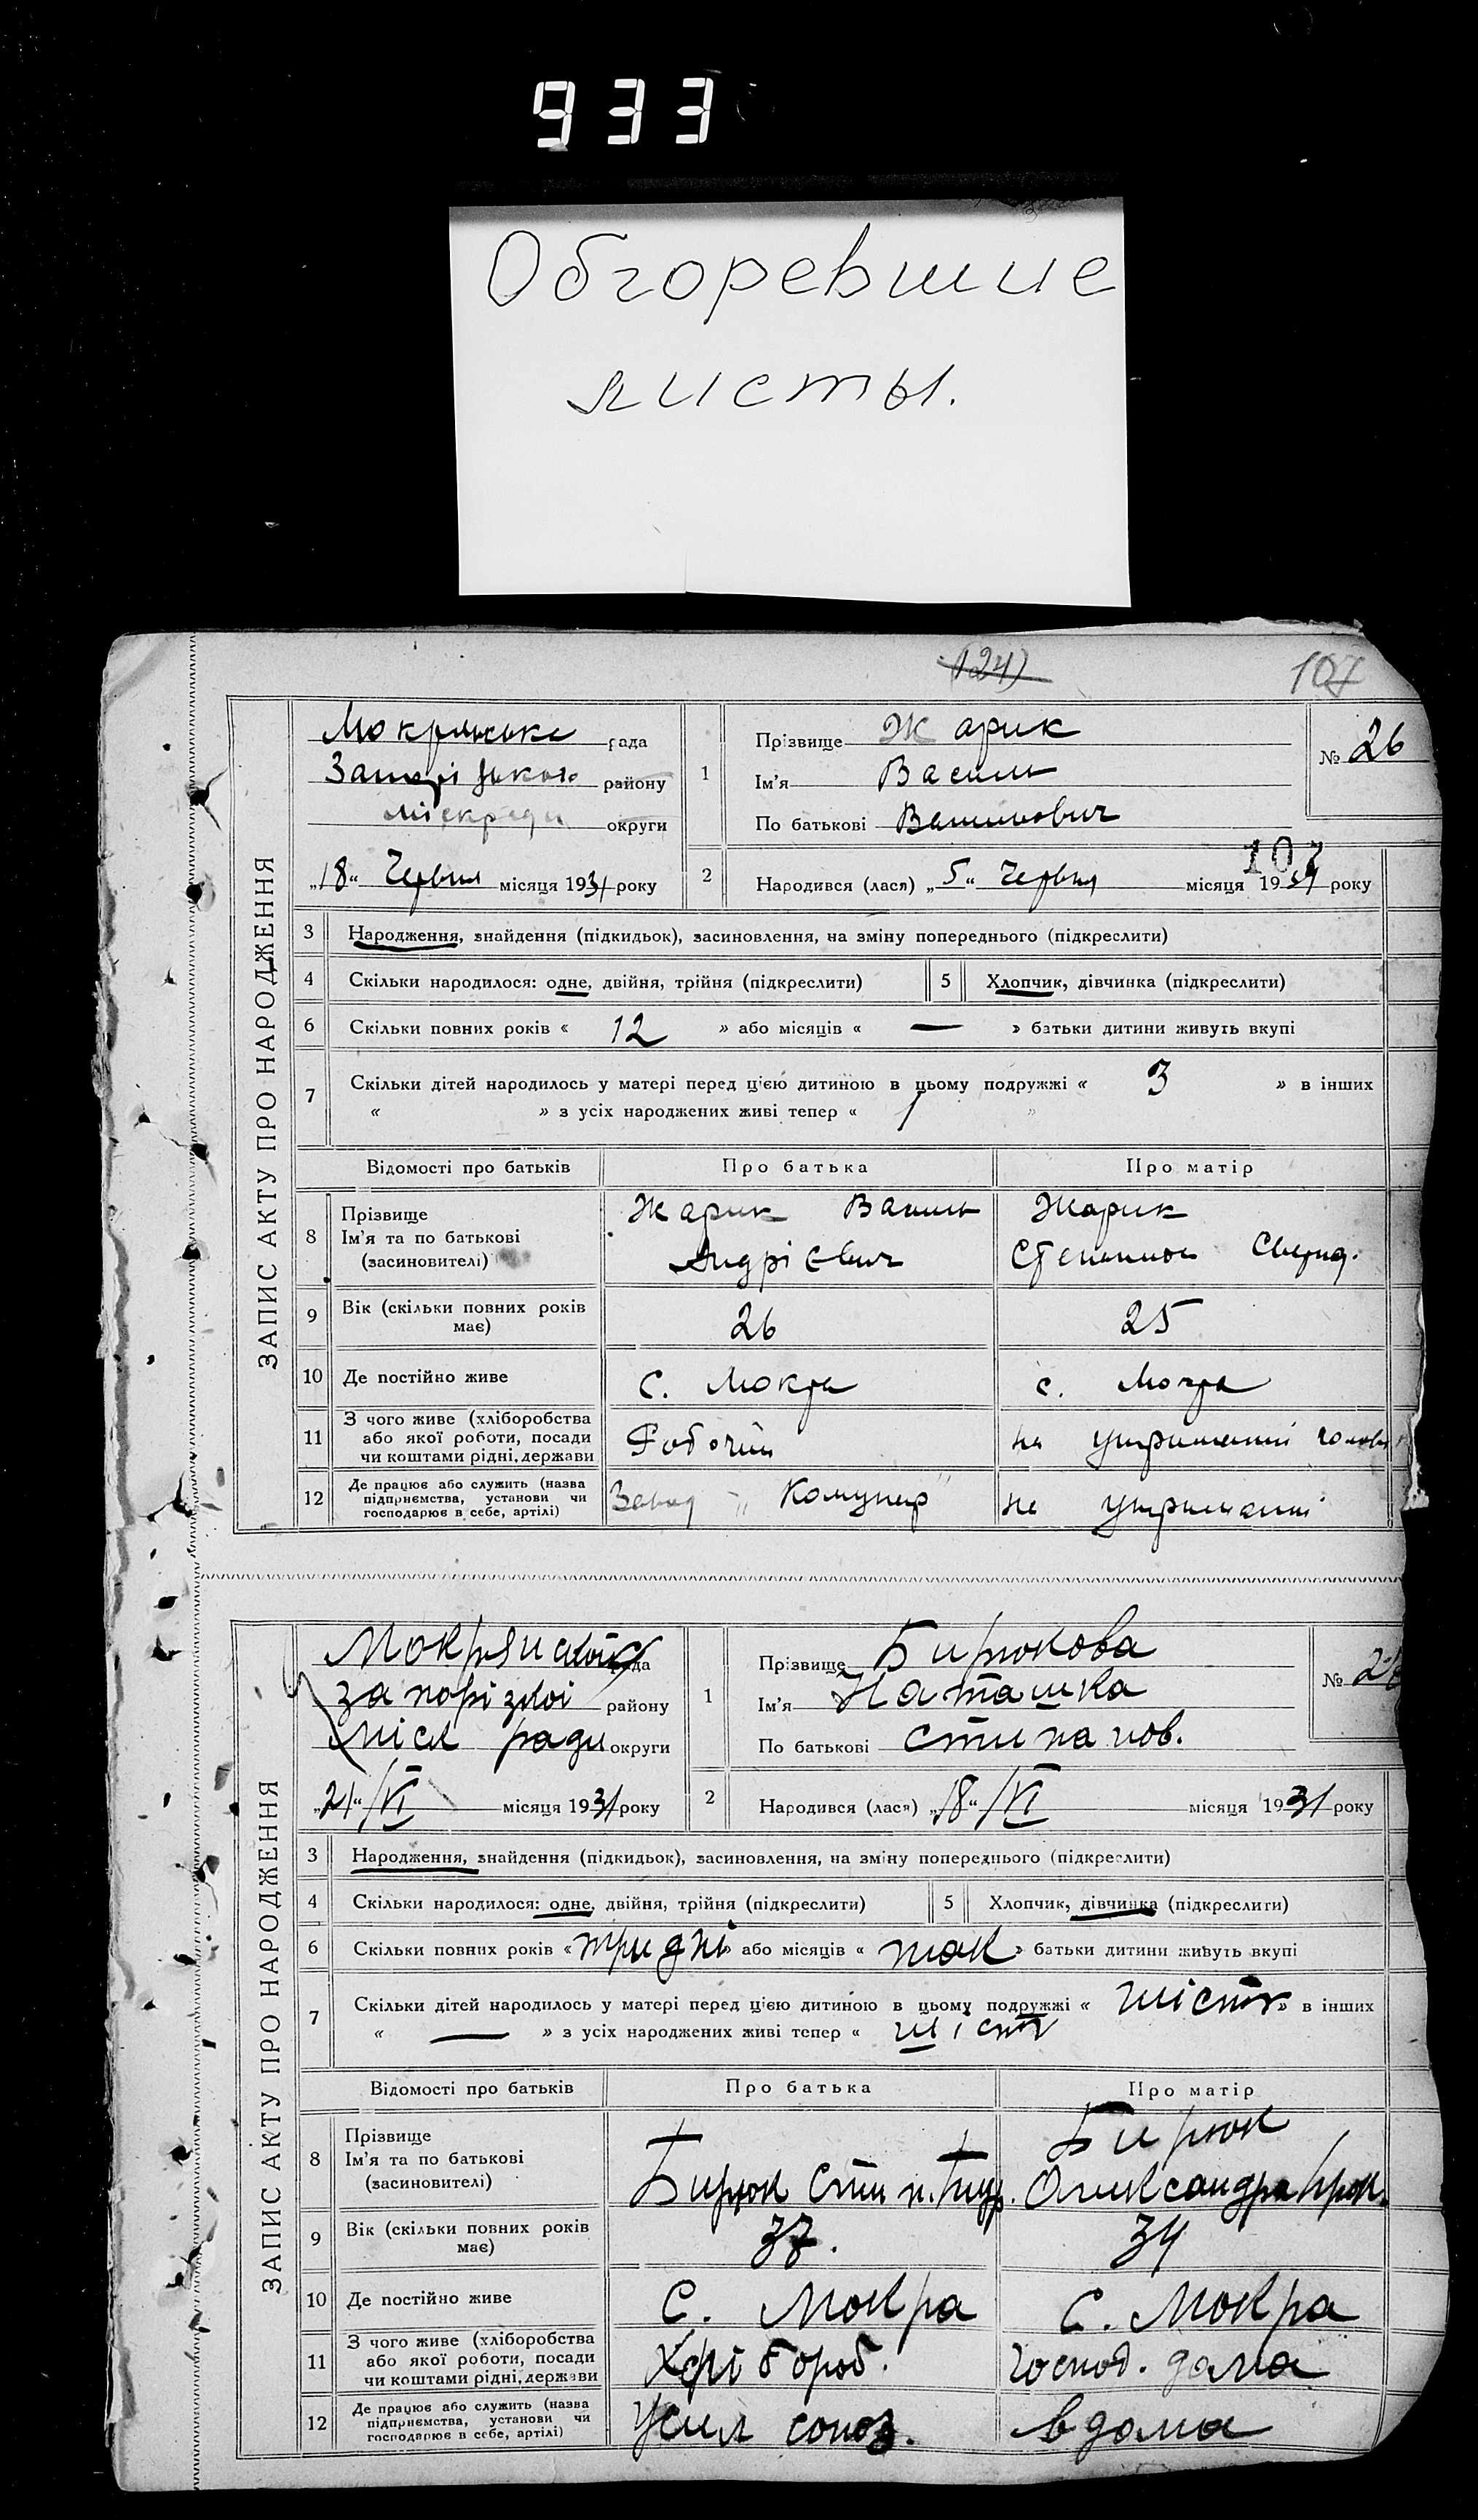 933
Обгоревшие
листы.
124)
107
ЗАПИС АКТУ ПРО НАРОДЖЕННЯ
рада
району
округи
„18“ Червня місяця 1931 року
1
Прізвище Жарик
Ім'я Василь
По батькові Васильович
№ 26
107
2
Народився (лася) „5“ Червня місяця 1931 року
3 Народження, знайдення (підкидьок), засиновлення, на зміну попереднього (підкреслити)
4 Скільки народилося: одне, двійня, трійня (підкреслити) 5 Хлопчик, дівчинка (підкреслити)
6 Скільки повних років « 12 » або місяців « — » батьки дитини живуть вкупі
7 Скільки дітей народилось у матері перед цією дитиною в цьому подружжі « 3 » в інших
« » з усіх народжених живі тепер « 1 »
Відомості про батьків Про батька Про матір
8 Прізвище
Ім'я та по батькові
(засиновителі)
Жарик Василь
Андрієвич
Жарик
9 Вік (скільки повних років
має)
26 25
10 Де постійно живе с. Мокра с. Мокра
11 З чого живе (хліборобства
або якої роботи, посади
чи коштами рідні, держави
Робочий
на утриманні
12 Де працює або служить (назва
підприємства, установи чи
господарює в себе, артілі)
Завод „Комунар"
на утриманні
ЗАПИС АКТУ ПРО НАРОДЖЕННЯ
рада
запорізкоі району
міск ради округи
„21“ /VI місяця 1931 року
1
Прізвище Бирюкова
Ім'я Наташка
По батькові стипанов.
№
2
Народився (лася) „18“ /VI місяця 1931 року
3 Народження, знайдення (підкидьок), засиновлення, на зміну попереднього (підкреслити)
4 Скільки народилося: одне, двійня, трійня (підкреслити) 5 Хлопчик, дівчинка (підкреслити)
6 Скільки повних років « три дні » або місяців « так » батьки дитини живуть вкупі
7 Скільки дітей народилось у матері перед цією дитиною в цьому подружжі « шість » в інших
« — » з усіх народжених живі тепер « шість
Відомості про батьків Про батька Про матір
8 Прізвище
Ім'я та по батькові
(засиновителі)
Бирюк Стип.
Бирюк
Олександра
9 Вік (скільки повних років
має)
37. 34
10 Де постійно живе с. Мокра с. Мокра
11 З чого живе (хліборобства
або якої роботи, посади
чи коштами рідні, держави
Хлібороб.
господ. дома
12 Де працює або служить (назва
підприємства, установи чи
господарює в себе, артілі)
союз.
в дома